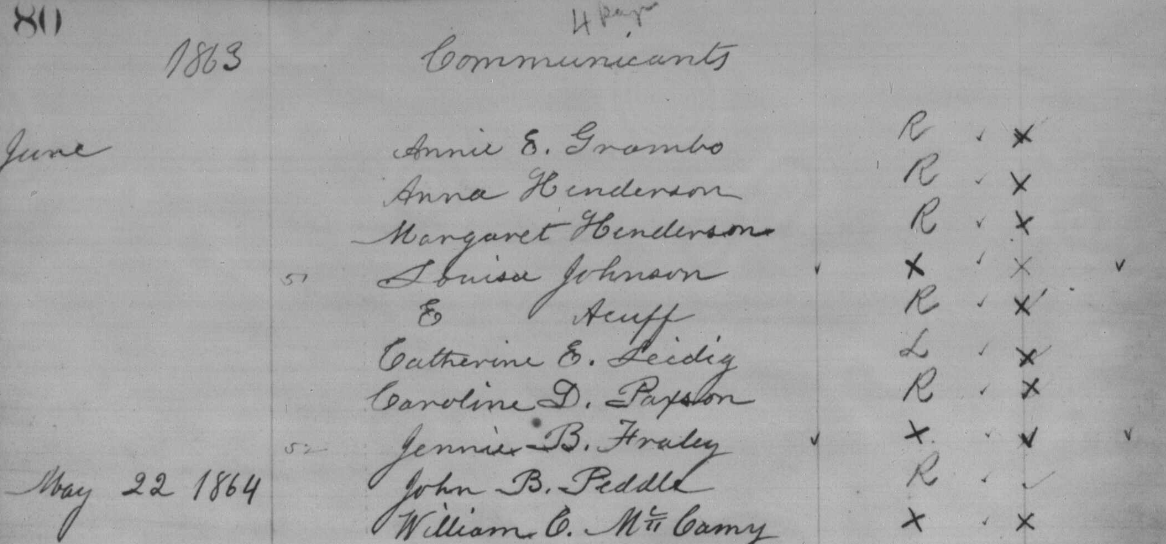 80
1863 Communicants
June Annie E. Grambo R ✓ x
Anna Henderson R ✓ x
Margaret Henderson R ✓ x
51 Louisa Johnson ✓ x ✓ x ✓
E Acuff R ✓ x
Catherine E. Leidig L ✓ x
Caroline D. Paxson R ✓ x
52 Jennie B. Fraley ✓ x ✓ ✓ ✓
May 22 1864 John B. Peddle R ✓ ✓
William C. Mc Camy x ✓ x